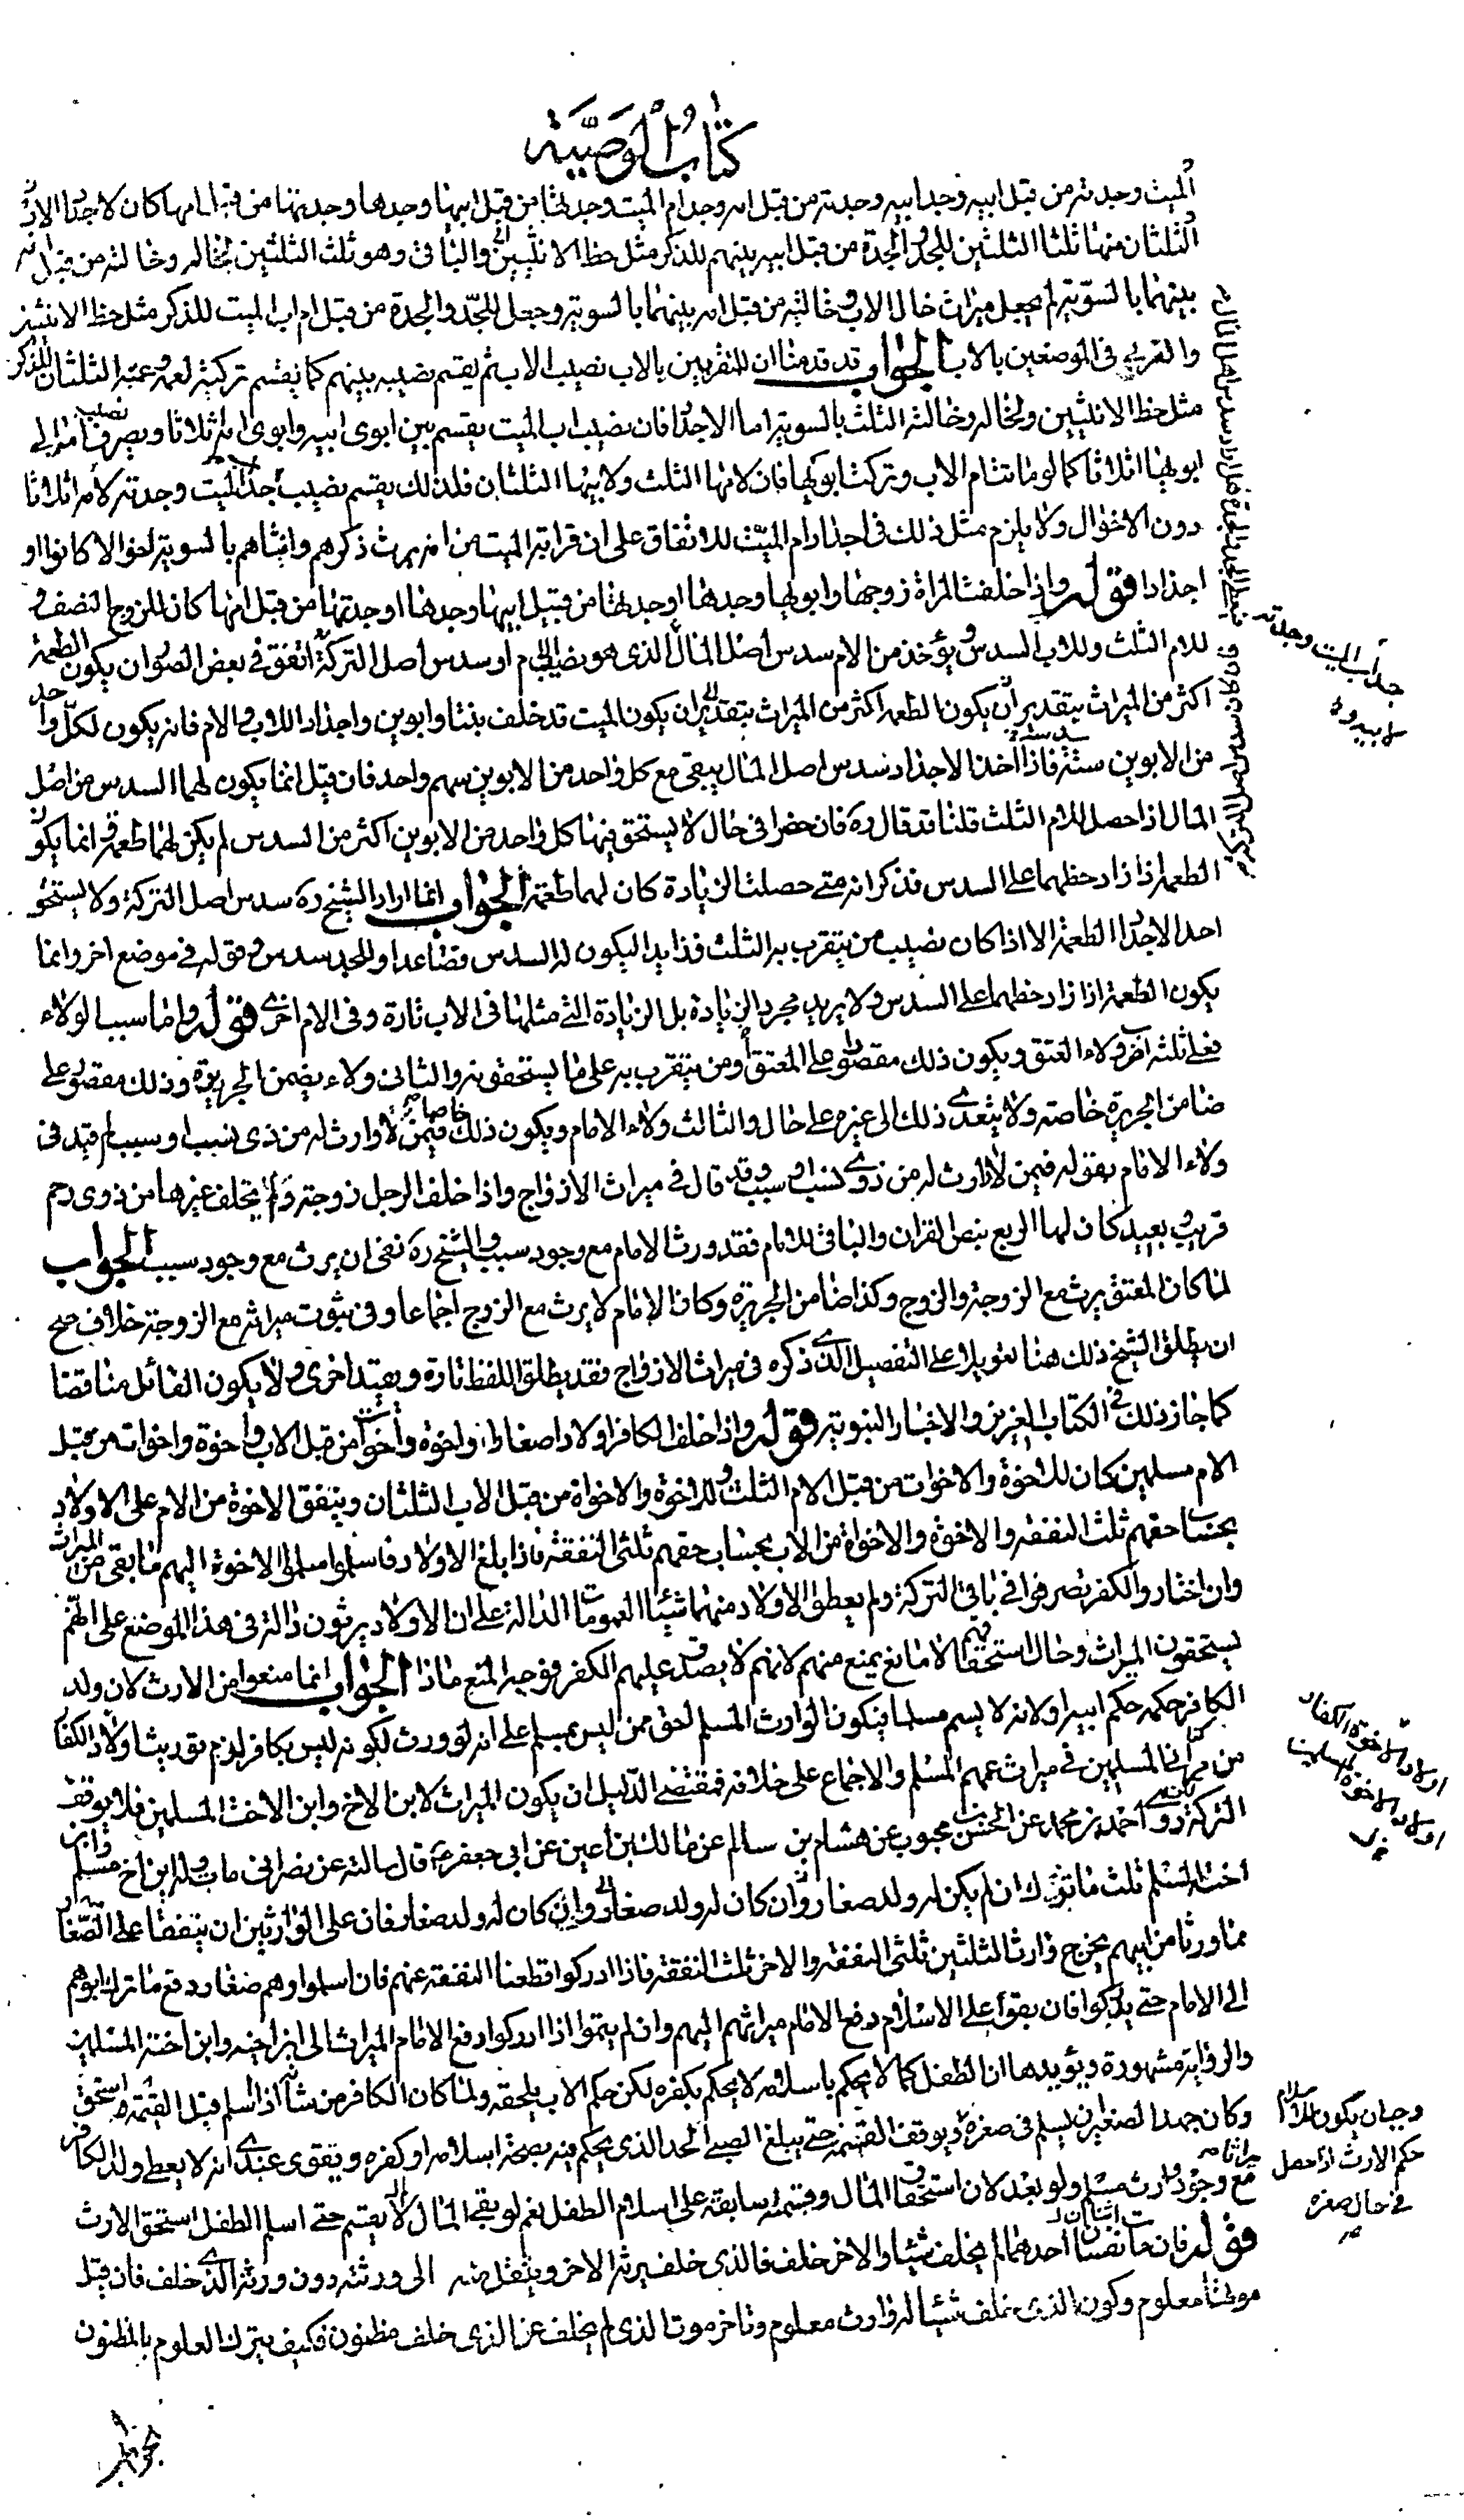 كتاب الوصية
الميت وجدته من قبل ابيه وجد ابيه وجدته من قبل امه وجد ام الميت وجدتها من قبل ابيها وجدها وجدتها من قبل امها كان لاجداد الاب
الثلثان منها ثلثا الثلثين للجد والجدة من قبل ابيه بينهم للذكر مثل حظ الانثيين والباقى وهو ثلث الثلثين لخاله وخالته من قبل امه
بينهما بالسوية لم جعل ميراث خال الاب وخالته من قبل امه بينهما بالسوية وجعل للجد والجدة من قبل ام اب الميت للذكر مثل حظ الانثيين
والقربى فى الموضعين بالاب الجواب قد قدمنا ان للمتقربين بالاب نصيب الاب ثم يقسم نصيبه بينهم كما يقسم تركته لعمه وعمته الثلثان للذكر
مثل حظ الانثيين ولخاله وخالته الثلث بالسوية اما الاجداد فان نصيب اب الميت يقسم بين ابوى ابيه وابوى امه اثلاثا ويصرف نصيب امه الى
ابويها اثلاثا كما لو ماتت ام الاب وتركت ابويها فان لامها الثلث ولابيها الثلثان فلذلك يقسم نصيب جد الميت وجدته لامه اثلاثا
دون الاخوال ولا يلزم مثل ذلك فى اجداد ام الميت للاتفاق على ان قرابة الميت من امه يرث ذكرهم وانثاهم بالسوية اخوالا كانوا او
اجدادا قوله واذا خلفت المراة زوجها وابويها وجدها او جدتها من قبل ابيها وجدها او جدتها من قبل امها كان للزوج النصف و
للام الثلث وللاب السدس ويؤخذ من الام سدس اصل المال الذى هو نصيب الام او سدس اصل التركة اتفق فى بعض الصور ان يكون الطعمة
اكثر من الميراث بتقدير ان يكون الطعمة اكثر من الميراث بتقدير ان يكون الميت قد خلف بنتا وابوين واجدادا للاب والام فانه يكون لكل واحد
من الابوين ستة فاذا اخذ الاجداد سدس اصل المال يبقى مع كل واحد من الابوين سهم واحد فان قيل انما يكون لهما السدس من اصل
المال اذا حصل للام الثلث قلنا قد قال ره فان حضرا فى حال لا يستحق فيها كل واحد من الابوين اكثر من السدس لم يكن لهما طعمة انما يكون
الطعمة اذا زاد حظهما على السدس فذكر انه متى حصلت الزيادة كان لهما طعمة الجواب انما اراد الشيخ ره سدس اصل التركة ولا يستحق
احد الاجداد الطعمة الا اذا كان نصيب من يتقرب به الثلث فزايدا ليكون له السدس فصاعدا وللجد سدس وقوله فى موضع اخر وانما
يكون الطعمة اذا زاد حظهما على السدس ولا يريد مجرد الزيادة بل الزيادة التى مثلها فى الاب تارة وفى الام اخرى قوله واما سبب الولاء
فعلى ثلثة اضرب ولاء العتق ويكون ذلك مقصورا على المعتق او من يتقرب به على ما يستحقونه والثانى ولاء يضمن الجريرة وذلك مقصور على
ضامن الجريرة خاصة ولا يتعدى ذلك الى غيره على حال والثالث ولاء الامام ويكون ذلك خاصا فيمن لا وارث له من ذى نسب او سبب لم قيد فى
ولاء الامام بقوله فيمن لا وارث له من ذوى نسب او سبب وقد قال فى ميراث الازواج واذا خلف الرجل زوجة ولم يخلف غيرها من ذوى رحم
قريب او بعيد كان لها الربع بنص القران والباقى للامام فقد ورث الامام مع وجود سبب والشيخ ره نفى ان يرث مع وجود سبب الجواب
لما كان المعتق يرث مع الزوجة والزوج وكذا ضامن الجريرة وكان الامام لا يرث مع الزوج اجماعا وفى ثبوت ميراثه مع الزوجة خلاف صح
ان يطلق الشيخ ذلك هنا تعويلا على التفصيل الذى ذكره فى ميراث الازواج فقد يطلق اللفظ تارة ويقيد اخرى ولا يكون القائل مناقضا
كما جاز ذلك فى الكتاب العزيز والاخبار النبوية قوله واذا خلف الكافر اولادا صغارا واخوة واخوات من قبل الاب واخوة واخوات من قبل
الام مسلمين كان للاخوة والاخوات من قبل الام الثلث وللاخوة والاخوات من قبل الاب الثلثان وينفق الاخوة من الام على الاولاد
بحساب حقهم ثلث النفقة والاخوة والاخوات من الاب بحساب حقهم ثلثى النفقة فاذا بلغ الاولاد فاسلموا سلموا الاخوة اليهم ما بقى من الميراث
وان اختاروا الكفر تصرفوا فى باقى التركة ولم يعطوا الاولاد منها شيئا العمومات الدالة على ان الاولاد يرثون دالة فى هذا الموضع على انهم
يستحقون الميراث وحال استحقاقهم لا مانع يمنع منهم لانهم لا يصدق عليهم الكفر فوجه المنع ماذا الجواب انما منعوا من الارث لان ولد
الكافر حكمه حكم ابيه ولانه لا يسم مسلما فيكون الوارث المسلم احق ممن ليس بمسلم على انه لو ورث لكونه ليس بكافر لزم توريث اولاد الكفار
من قرابة المسلمين فى ميراث عمهم المسلم والاجماع على خلافه فمقتضى الدليل ان يكون الميراث لابن الاخ وابن الاخت المسلمين فلا يوقف
التركة لكن روى احمد بن محمد عن الحسن بن محبوب عن هشام بن سالم عن مالك بن اعين عن ابى جعفر ع قال سالته عن نصرانى مات وله ابن اخ مسلم وابن
اخت مسلم ثلث ما ترك ان لم يكن له ولد صغار وان كان له ولد صغار فان على الوارثين ان ينفقا على الصغار
مما ورثا من ابيهم يخرج وارث الثلثين ثلثى النفقة والاخر ثلث النفقة فاذا ادركوا قطعنا النفقة عنهم فان اسلموا وهم صغار دفع ما ترك ابوهم
الى الامام حتى يدركوا فان بقوا على الاسلام دفع الامام ميراثهم اليهم وان لم يتموا اذا ادركوا دفع الامام الميراث الى ابن اخيه وابن اخته المسلمين
والرواية مشهورة ويؤيدها ان الطفل كما لا يحكم باسلامه لا يحكم بكفره لكن حكم الاب يلحقه ولما كان الكافر من شانه اذا اسلم قبل القسمة استحق
وكان جهد الصغير ان يسلم فى صغره يوقف القسمة حتى يبلغ الصبى الحد الذى يحكم فيه بصحة اسلامه او كفره ويقوى عندى انه لا يعطى ولد الكافر
ميراثا مع وجود وارث مسلم ولو بعد لان استحقاق المال وقسمته سابقة على اسلام الطفل نعم لو بقى المال لا يقسم حتى اسلم الطفل استحق الارث
قوله فان مات نفسان احدهما لم يخلف شيئا والاخر خلف فالذى خلف يرثه الاخر وينتقل منه الى ورثته دون ورثة الذى خلف فان قيل
موتهما معلوم وكون الذى خلف شيئا له وارث معلوم وتاخر موت الذى لم يخلف عن الذى خلف مظنون فكيف يترك المعلوم بالمظنون
جد اب الميت وجدته
لابيه
اولاد الاخوة الكفار
اولاد الاخوة المسلمين
وجب ان يكون للاسلام
حكم الارث اذا حصل
فى حال صغره